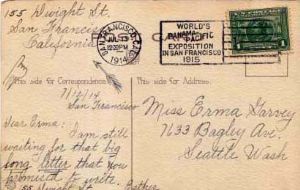 155 Dwight St.
San Francisco
California
SAN FRANCISCO, CAL.
JUL 13
12:30 PM
1914
WORLD'S
PANAMA-PACIFIC
EXPOSITION
IN SAN FRANCISCO
1915
This side for Correspondence
This side for Address
7/12/14
San Francisco
Dear Erma: I am still
waiting for that big
long letter that you
promised to write.
155 Dwight St. Esther
Miss Erma Garvey
7633 Bagley Ave
Seattle Wash